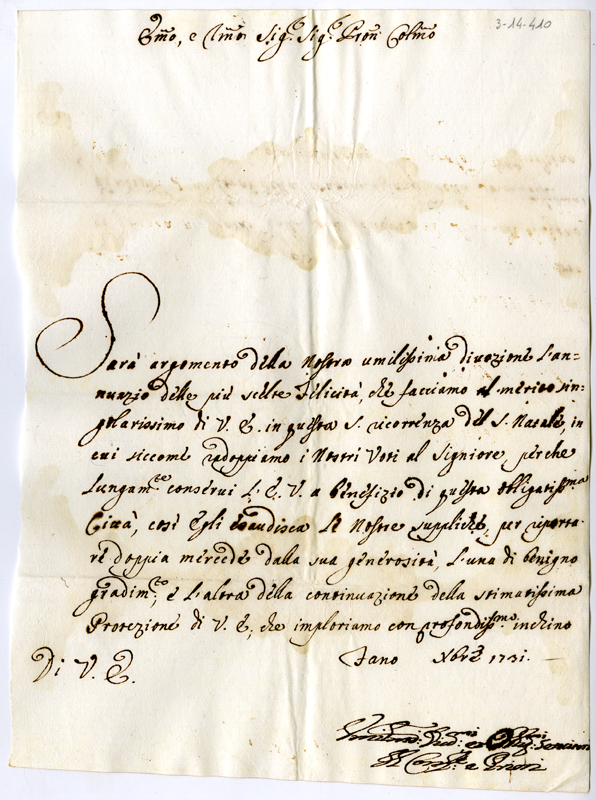 3-14-410
Em̃o, e Rm̃o Sig.r Sig.r Pron Colmo
Sarà argomento della Nostra umilissima divozione l'an=
nunzio delle più scelte Felicità, che facciamo al merito sin=
golarissimo di V. E. in questa S. ricorrenza del S. Natale, in
cui siccome radoppiamo i Nostri Voti al Signiore, perche
lungam.te conservi l'E. V. a benefizio di questa obligatiss.ma
Città, così Egli esaudisca le Nostre suppliche, per riporta=
re doppia mercede dalla sua generosità, l'una di benigno
gradim.to, e l'altra della continuazione della stimatissima
Protezione di V. E., che imploriamo con profondiss.mo inchino
Di V. E. Fano Xbre 1731.
Umilissi.mi Div.mi ed Oblig.mi Servitori
Il Conf.re e Priori